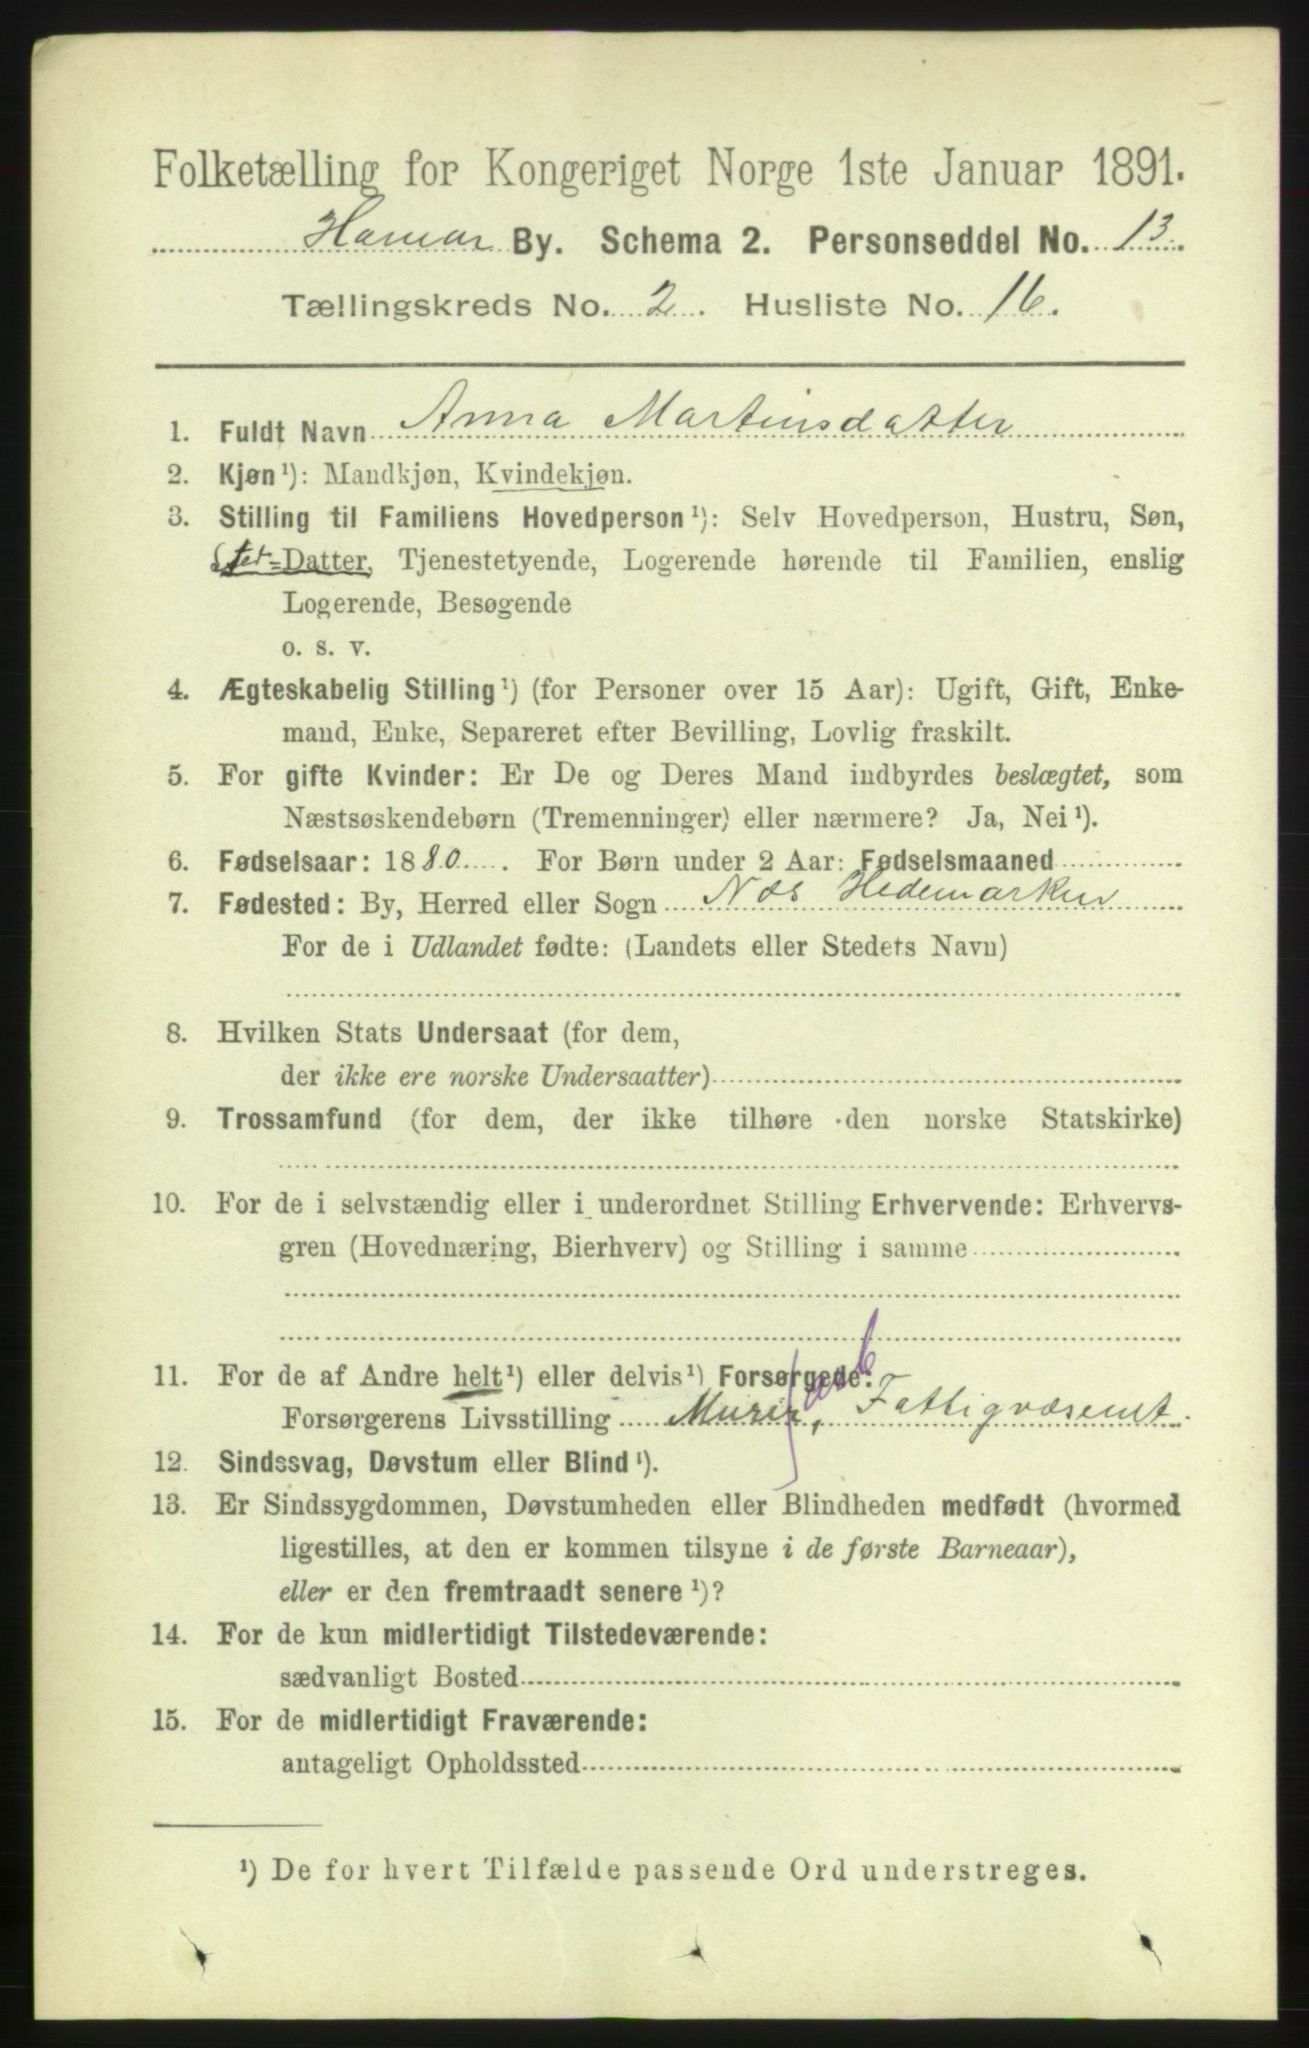 Folketælling for Kongeriget Norge 1ste Januar 1891.
Hamar By. Schema 2. Personseddel No. 13.
Tællingskreds No. 2. Husliste No. 16.
1. Fuldt Navn Anna Martinsdatter
2. Kjøn ¹): Mandkjøn, Kvindekjøn.
3. Stilling til Familiens Hovedperson ¹): Selv Hovedperson, Hustru, Søn,
Datter, Tjenestetyende, Logerende hørende til Familien, enslig
Logerende, Besøgende
o. s. v.
4. Ægteskabelig Stilling ¹) (for Personer over 15 Aar): Ugift, Gift, Enke-
mand, Enke, Separeret efter Bevilling, Lovlig fraskilt.
5. For gifte Kvinder: Er De og Deres Mand indbyrdes beslægtet, som
Næstsøskendebørn (Tremenninger) eller nærmere? Ja, Nei ¹).
6. Fødselsaar: 1880. For Børn under 2 Aar: Fødselsmaaned
7. Fødested: By, Herred eller Sogn Næs Hedemarken
For de i Udlandet fødte: (Landets eller Stedets Navn)
8. Hvilken Stats Undersaat (for dem,
der ikke ere norske Undersaatter)
9. Trossamfund (for dem, der ikke tilhøre den norske Statskirke)
10. For de i selvstændig eller i underordnet Stilling Erhvervende: Erhvervs-
gren (Hovednæring, Bierhverv) og Stilling i samme
11. For de af Andre helt ¹) eller delvis ¹) Forsørgede:
Forsørgerens Livsstilling Murer, Fattigvæsenet.
12. Sindssvag, Døvstum eller Blind ¹).
13. Er Sindssygdommen, Døvstumheden eller Blindheden medfødt (hvormed
ligestilles, at den er kommen tilsyne i de første Barneaar),
eller er den fremtraadt senere ¹)?
14. For de kun midlertidigt Tilstedeværende:
sædvanligt Bosted
15. For de midlertidigt Fraværende:
antageligt Opholdssted
¹) De for hvert Tilfælde passende Ord understreges.